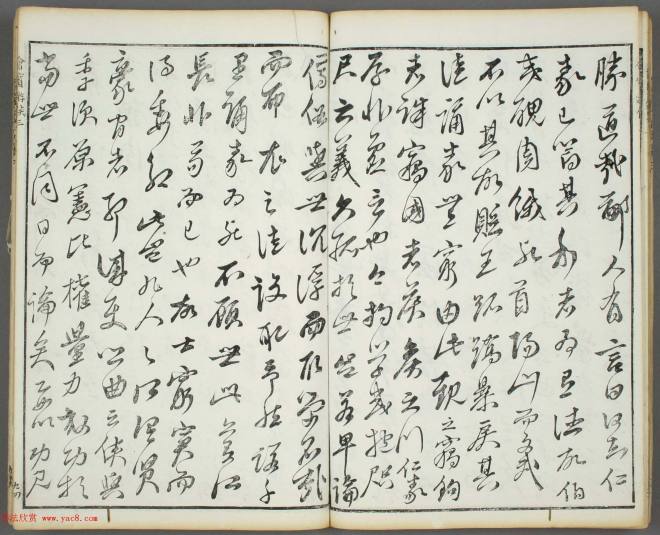 勝道哉鄙人有言曰何知仁
義已饗其利者為有德故伯
夷醜周餓死首陽山而文武
不以其故貶王跖蹻暴戾其
徒誦義無窮由此觀之竊鉤
者誅竊國者侯侯之門仁義
存非虛言也今拘學或抱咫
尺之義久孤於世豈若卑論
儕俗與世沉浮而取榮名哉
而布衣之徒設取予然諾千
里誦義為死不顧世此亦有所
長非苟而已也故士窮窘而
得委命此豈非人之所謂賢
豪間者邪誠使鄉曲之俠與
季次原憲比權量力效功於
當世不同日而論矣要以功見
书法欣赏 www.yac8.com